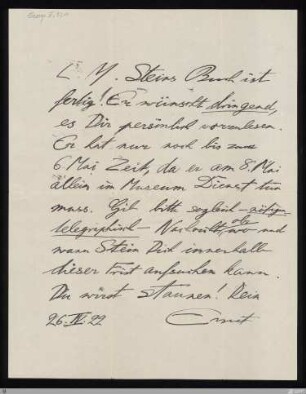 L. M. Steins Buch ist
fertig! Er wünscht dringend,
es Dir persönlich vorzulesen.
Er hat nur noch bis zum
6. Mai Zeit, da er am 8. Mai
allein im Museum Dienst tun
muss. Gib bitte sogleich – nötigen-
telegraphisch – Nachricht, ob, wo und
wann Stein Dich innerhalb
dieser Frist aufsuchen kann.
Du wirst staunen! Dein
26 IV 22 Ernst